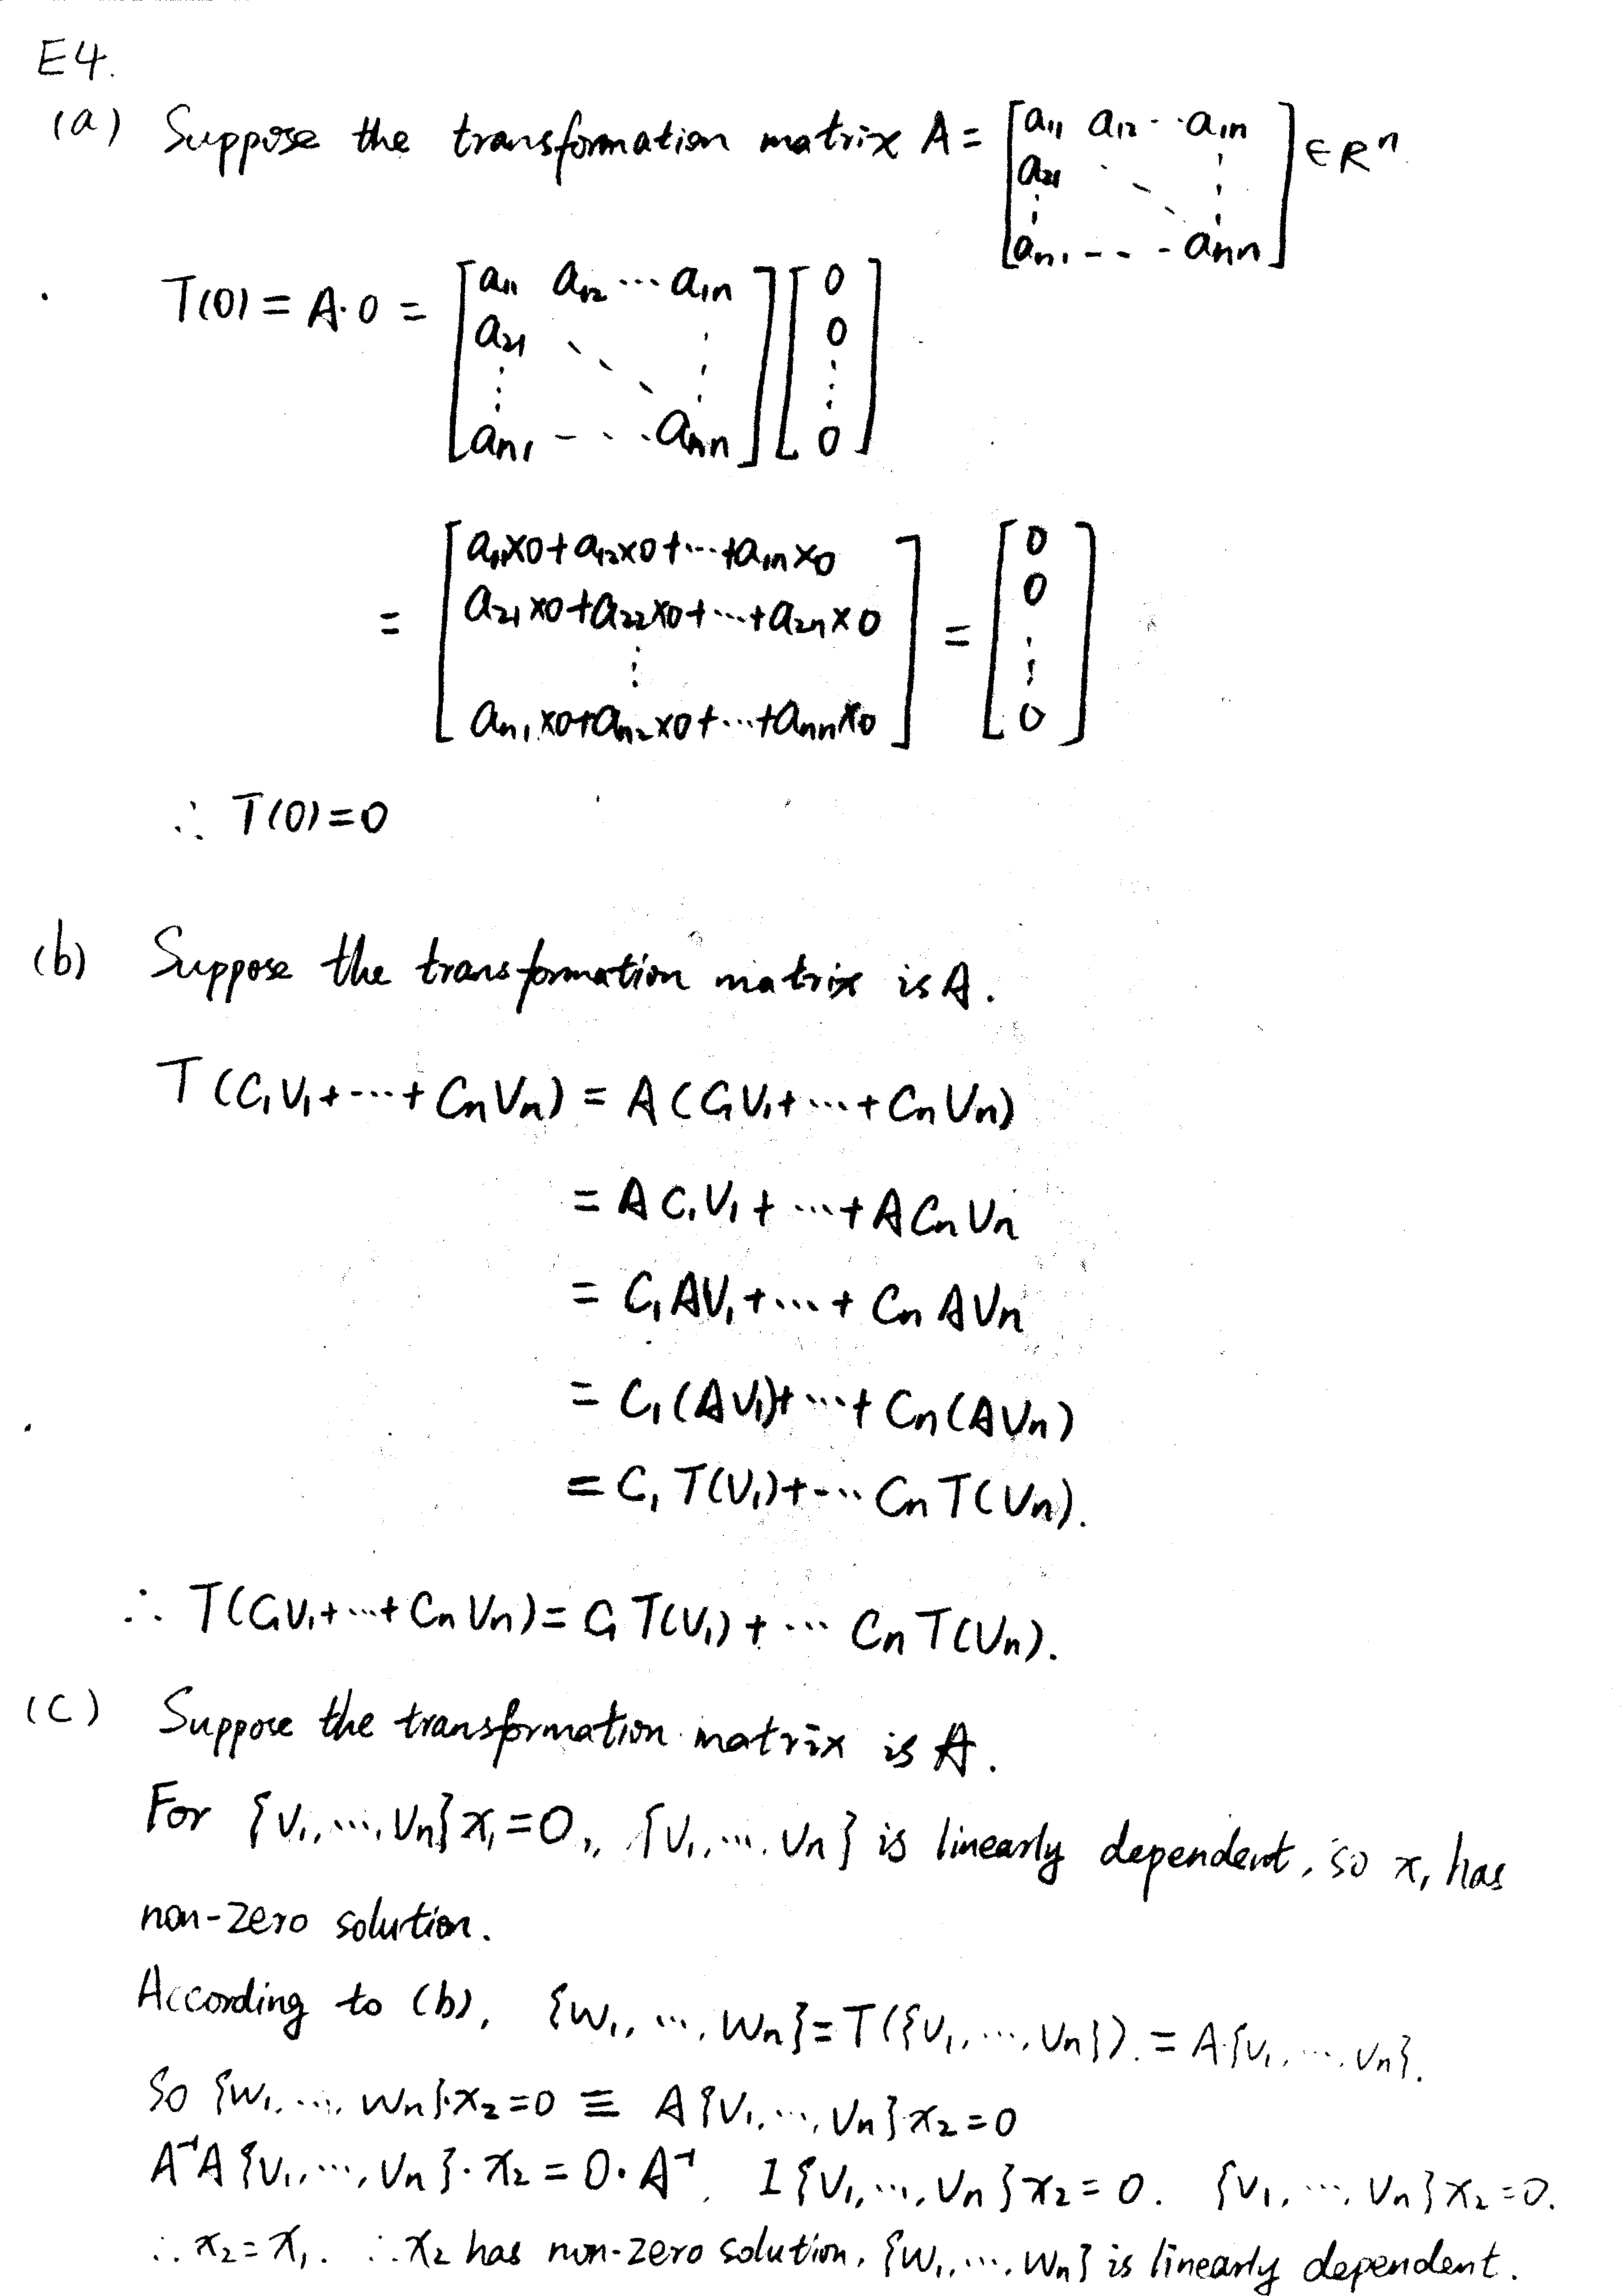 E4.
(a) Suppose the transformation matrix A = [a11 a12 ... a1n
a21
⋮ ⋱ ⋮
an1 --- ann] ∈ R^n.
T(0) = A·0 = [a11 a12 ... a1n
a21
⋮ ⋱ ⋮
an1 - ... ann] [0
0
⋮
0]
= [a11×0+a12×0+...+a1n×0
a21×0+a22×0+...+a2n×0
⋮
an1×0+an2×0+...+ann×0] = [0
0
⋮
0]
∴ T(0)=0
(b) Suppose the transformation matrix is A.
T(C1V1+...+CnVn) = A(C1V1+...+CnVn)
= AC1V1+...+ACnVn
= C1AV1+...+CnAVn
= C1(AV1)+...+Cn(AVn)
= C1T(V1)+... CnT(Vn).
∴ T(C1V1+...+CnVn) = C1T(V1)+... CnT(Vn).
(C) Suppose the transformation matrix is A.
For {V1, ..., Vn}x1=0, {V1, ..., Vn} is linearly dependent, so x1 has
non-zero solution.
According to (b), {W1, ..., Wn}=T({V1, ..., Vn}). = A·{V1, ..., Vn}.
So {W1, ..., Wn}·x2=0 ≡ A{V1, ..., Vn}·x2=0
A⁻¹A{V1, ..., Vn}·x2=0·A⁻¹, I{V1, ..., Vn}x2=0. {V1, ..., Vn}x2=0.
∴ x2=x1. ∴ x2 has non-zero solution, {W1, ..., Wn} is linearly dependent.